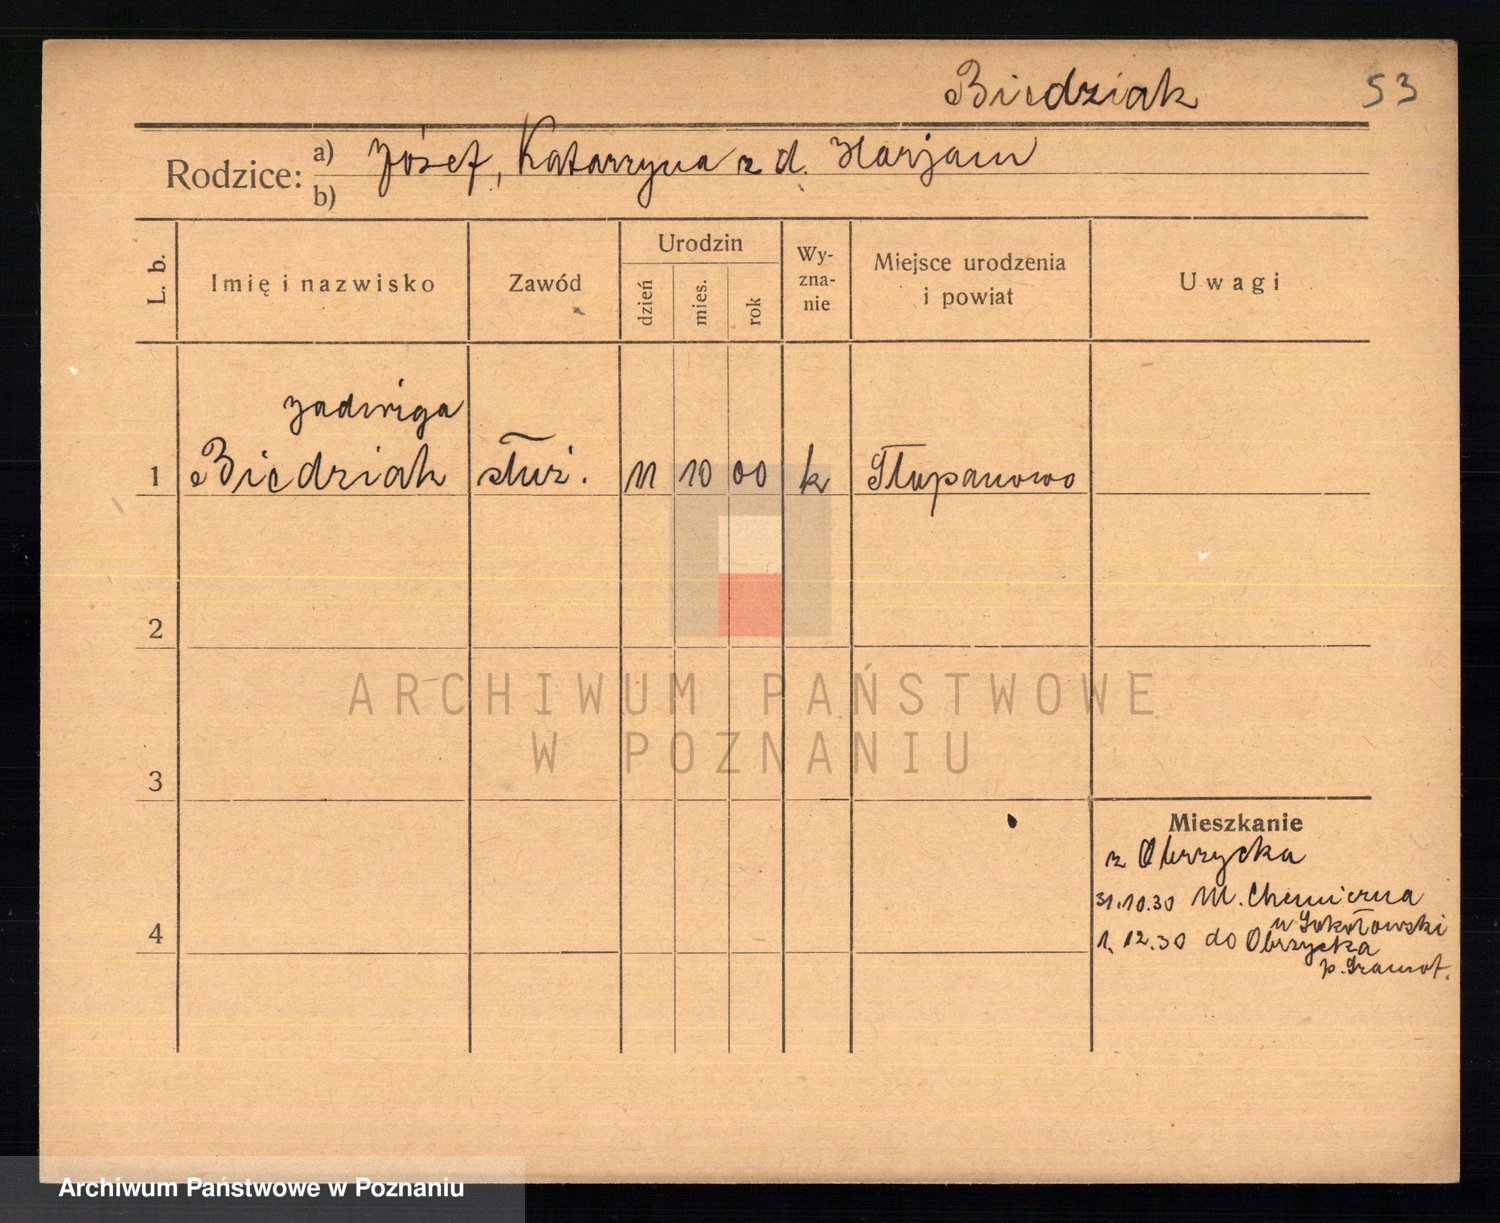 Biedziak 53
Rodzice: a) Józef, Katarzyna z d. Marjam
b)
L. b. Imię i nazwisko Zawód Urodzin dzień mies. rok Wy-zna-nie Miejsce urodzenia i powiat Uwagi
Jadwiga
1 Biedziak służ. 11 10 00 k Słupanowo
2
ARCHIWUM PAŃSTWOWE
W POZNANIU
3
Mieszkanie
z Obrzycka
31.10.30 M. Chemiczna
u Sokołowski
4
1. 12.30 do Obrzycka
p. Szamot.
Archiwum Państwowe w Poznaniu